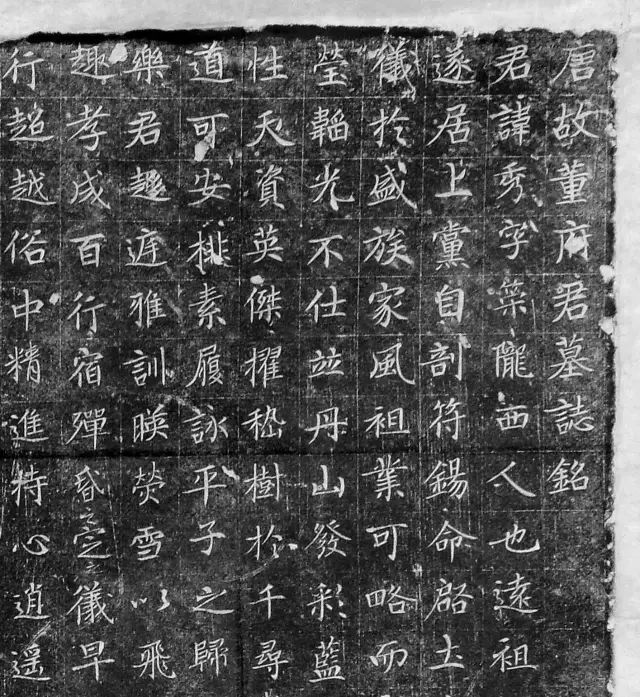 唐故董府君墓誌銘
君諱秀字隴西人也遠祖
遂居上黨自剖符錫命啓土
儀於盛族家風祖業可略而
瑩韜光不仕並丹山發彩藍
性天資英傑擢嵇樹於千尋
道可安排素履詠平子之歸
樂君趍庭雅訓暎熒雪以飛
趣孝成百行宿殫昏定儀早
行超越俗中精進持心逍遥